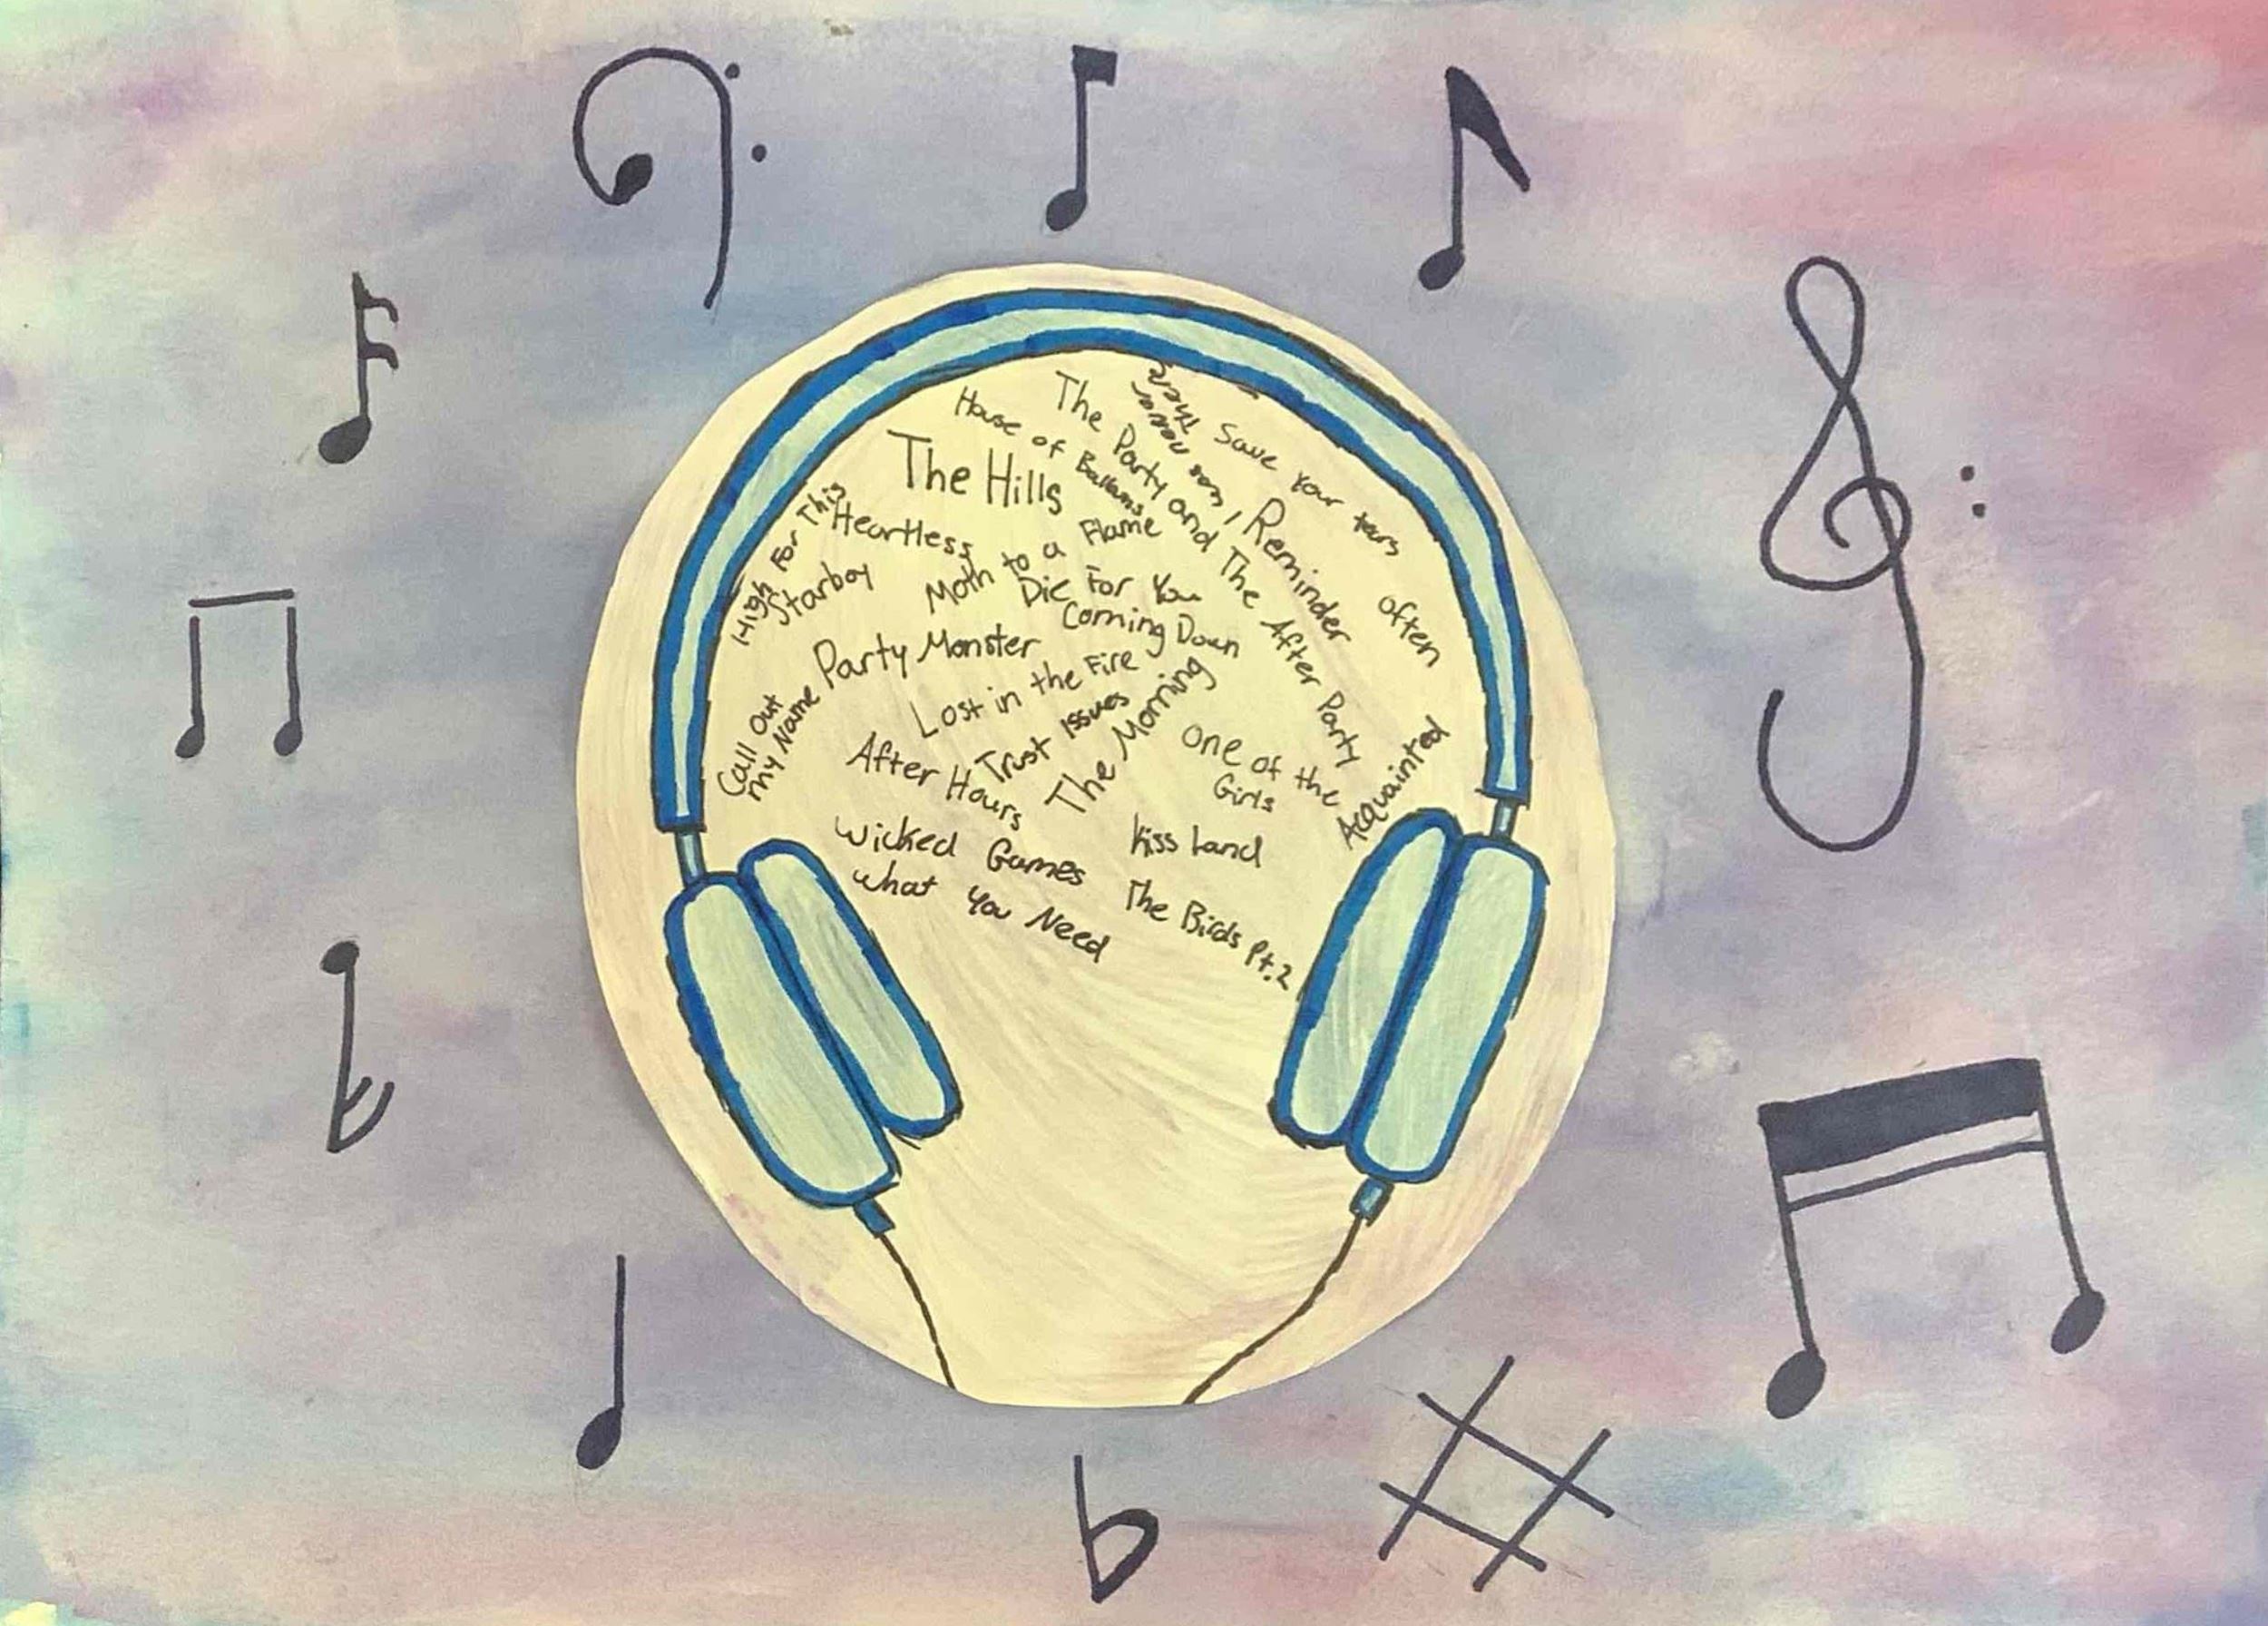 I was never
there
Save your tears
The Party and The After Party
House of Balloons
The Hills
Reminder
often
High For This
Heartless
Starboy
Moth to a Flame
Die For You
Coming Down
Party Monster
Lost in the Fire
Call Out
my Name
Trust Issues
The Morning
After Hours
one of the
Girls
Acquainted
Kiss Land
Wicked Games
What You Need
The Birds Pt.2